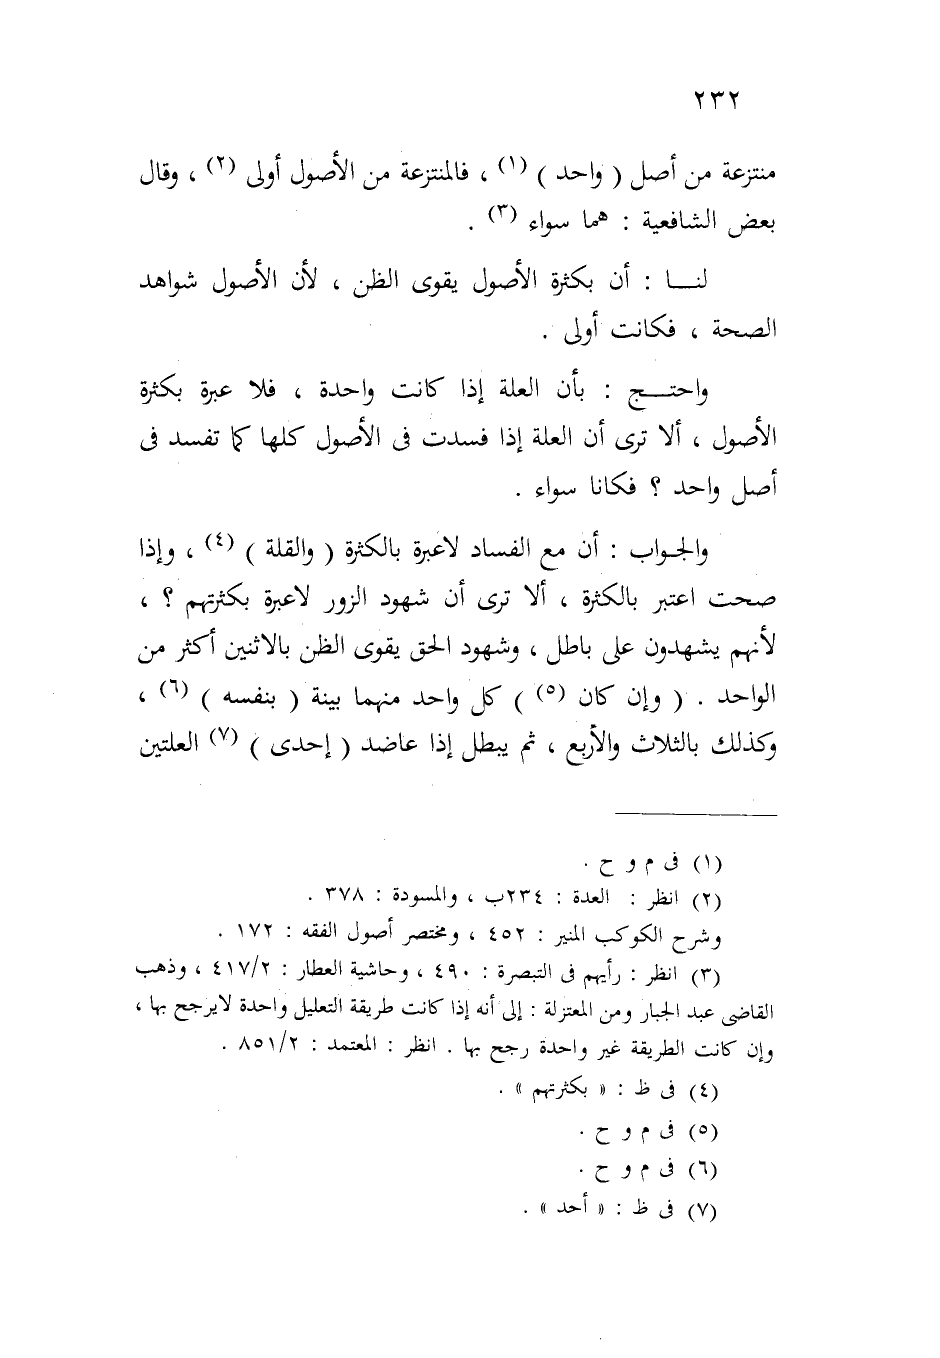 ٢٣٢
منتزعة من أصل ( واحد ) (١) ، فالمنتزعة من الأصول أولى (٢) ، وقال
بعض الشافعية : هما سواء (٣) .
لنــا : أن بكثرة الأصول يقوى الظن ، لأن الأصول شواهد
الصحة ، فكانت أولى .
واحتــج : بأن العلة إذا كانت واحدة ، فلا عبرة بكثرة
الأصول ، ألا ترى أن العلة إذا فسدت فى الأصول كلها كما تفسد فى
أصل واحد ؟ فكانا سواء .
والجواب : أن مع الفساد لاعبرة بالكثرة ( والقلة ) (٤) ، وإذا
صحت اعتبر بالكثرة ، ألا ترى أن شهود الزور لاعبرة بكثرتهم ؟ ،
لأنهم يشهدون على باطل ، وشهود الحق يقوى الظن بالاثنين أكثر من
الواحد . ( وإن كان (٥) ) كل واحد منهما بينة ( بنفسه ) (٦) ،
وكذلك بالثلاث والأربع ، ثم يبطل إذا عاضد ( إحدى ) (٧) العلتين
(١) فى م و ح .
(٢) انظر : العدة : ٢٣٤ب ، والمسودة : ٣٧٨ .
وشرح الكوكب المنير : ٤٥٢ ، ومختصر أصول الفقه : ١٧٢ .
(٣) انظر : رأيهم فى التبصرة : ٤٩٠ ، وحاشية العطار : ٤١٧/٢ ، وذهب
القاضى عبد الجبار ومن المعتزلة : إلى أنه إذا كانت طريقة التعليل واحدة لايرجح بها ،
وإن كانت الطريقة غير واحدة رجح بها . انظر : المعتمد : ٨٥١/٢ .
(٤) فى ظ : « بكثرتهم » .
(٥) فى م و ح .
(٦) فى م و ح .
(٧) فى ظ : « أحد » .